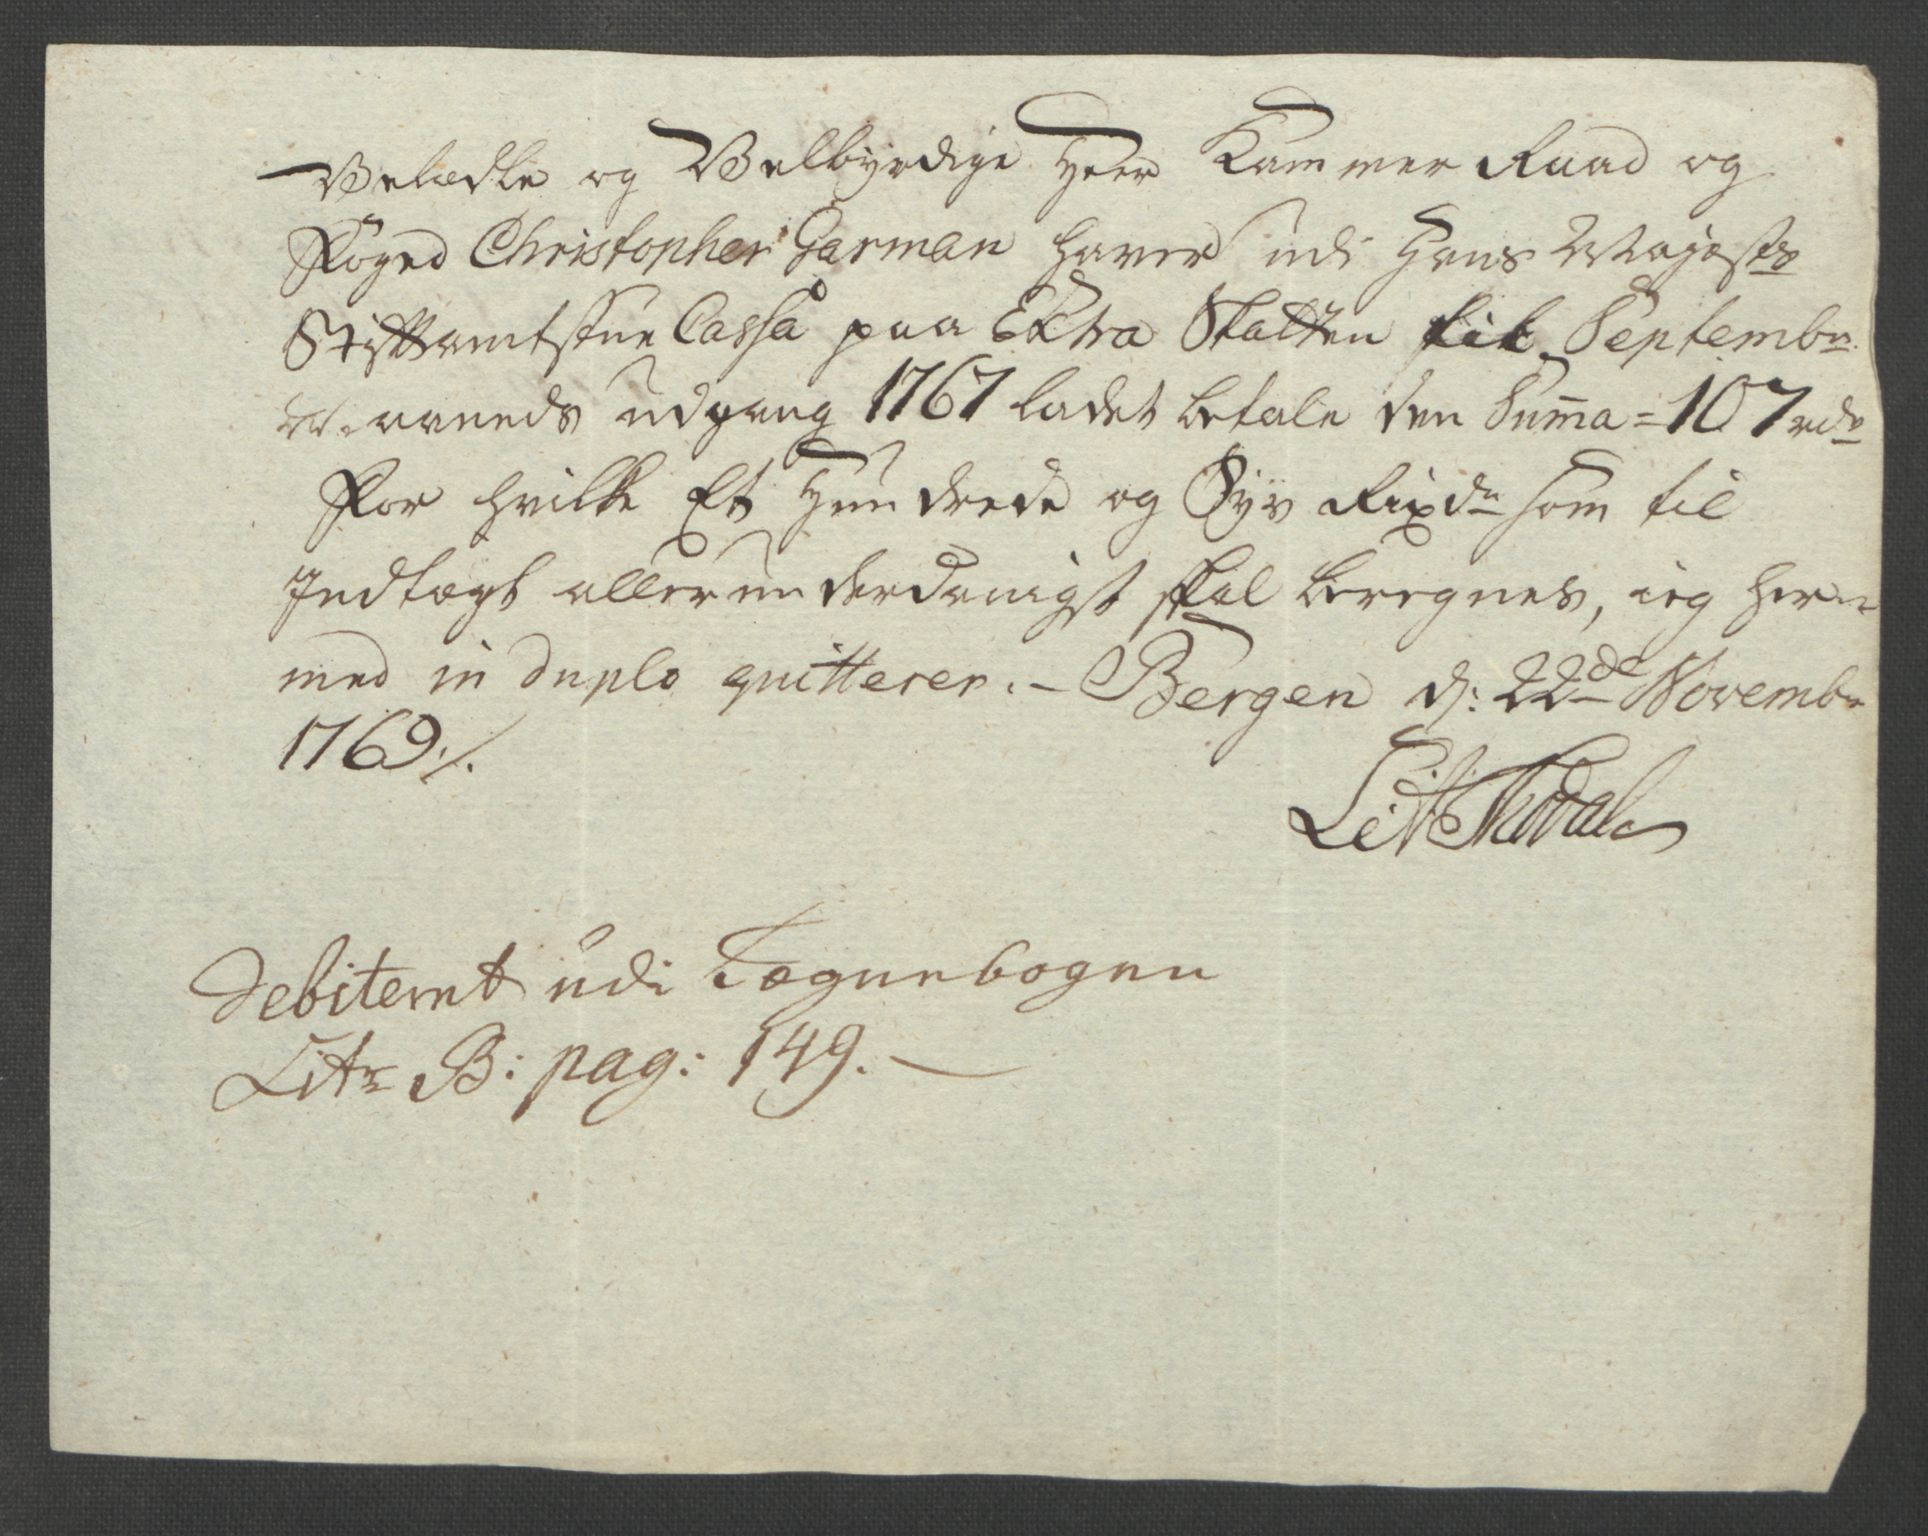 Velædle og Velbyrdige Herr Kammer Raad og
Foged Christopher Garman haver udi Hans Mayests
Stiftamtstue Cassa paa Extra Skatten til Septembr
Maaneds udgang 1767 ladet betale den Summa = 107 rdr
For hvilke Et Hundrede og Syv Rixdr som til
Indtægt allerunderdanigst skal beregnes, ieg her-
med in duplo quitterer. - Bergen d: 22de Novembr
1769 ./.
debiteret udi Tegnebogen
Litr B: pag: 149. —